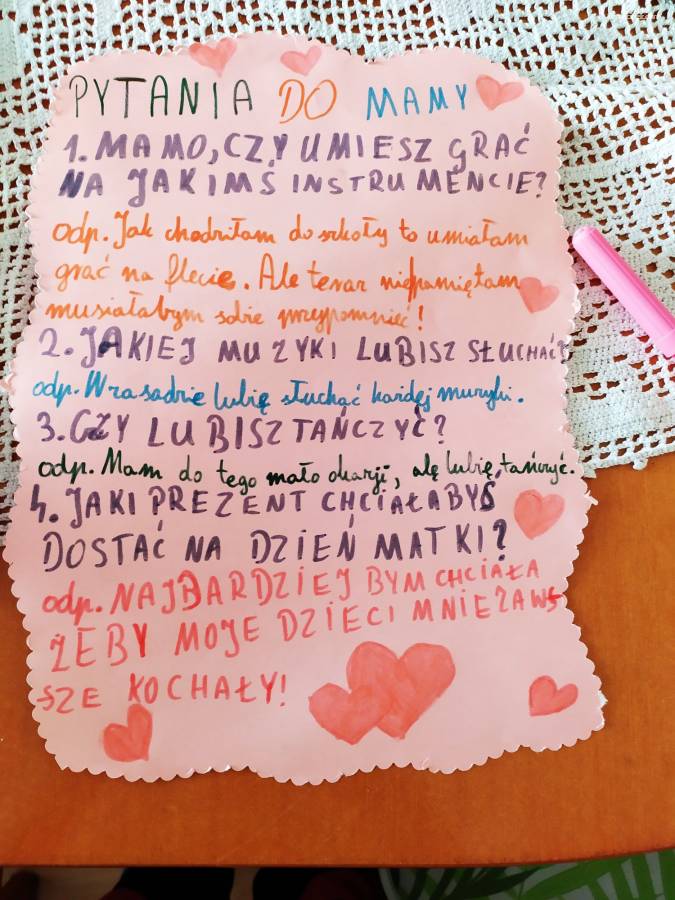 PYTANIA DO MAMY
1. MAMO, CZY UMIESZ GRAĆ
NA JAKIMŚ INSTRUMENCIE?
odp. Jak chodziłam do szkoły to umiałam
grać na flecie. Ale teraz niepamiętam
musiałabym sobie przypomnieć!
2. JAKIEJ MUZYKI LUBISZ SŁUCHAĆ?
odp. W zasadzie lubię słuchąć każdej muzyki.
3. CZY LUBISZ TAŃCZYĆ?
odp. Mam do tego mało okazji, alę lubię tańczyć.
4. JAKI PREZENT CHCIAŁABYŚ
DOSTAĆ NA DZIEŃ MATKI?
odp. NAJBARDZIEJ BYM CHCIAŁA
ŻEBY MOJE DZIECI MNIE ZAWS-
SZE KOCHAŁY!